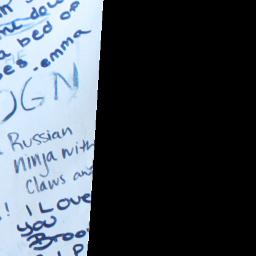 down
a bed of
es.-emma
OGN
Russian
ninja with
claws and
! I LOVE
YOU